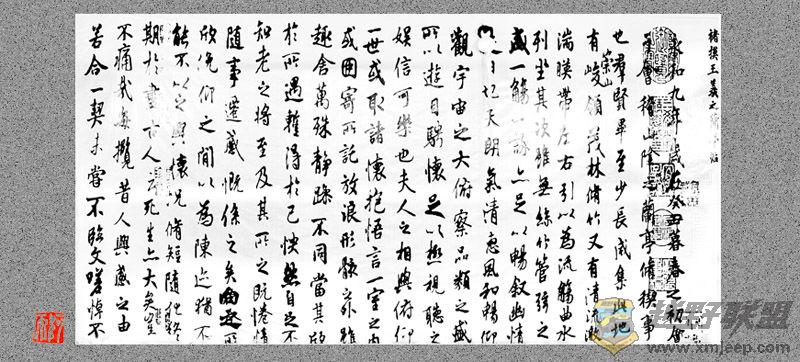 褚摸王羲之蘭亭帖
永和九年歲在癸丑暮春之初會
于會稽山陰之蘭亭脩稧事
也羣賢畢至少長咸集此地
有崇山峻領茂林脩竹又有清流激
湍暎帶左右引以為流觴曲水
列坐其次雖無絲竹管弦之
盛一觴一詠亦足以暢叙幽情
日也天朗氣清惠風和暢仰
觀宇宙之大俯察品類之盛
所以遊目騁懷足以極視聽之
娛信可樂也夫人之相與俯仰
一世或取諸懷抱悟言一室之內
或因寄所託放浪形骸之外雖
趣舍萬殊靜躁不同當其欣
於所遇暫得於己快然自足不
知老之將至及其所之既惓情
隨事遷感慨係之矣向之所
欣俛仰之間以為陳迹猶不
能不以之興懷況脩短隨化終
期於盡古人云死生亦大矣豈
不痛哉每攬昔人興感之由
若合一契未嘗不臨文嗟悼不
越野联盟
www.xmjeep.com